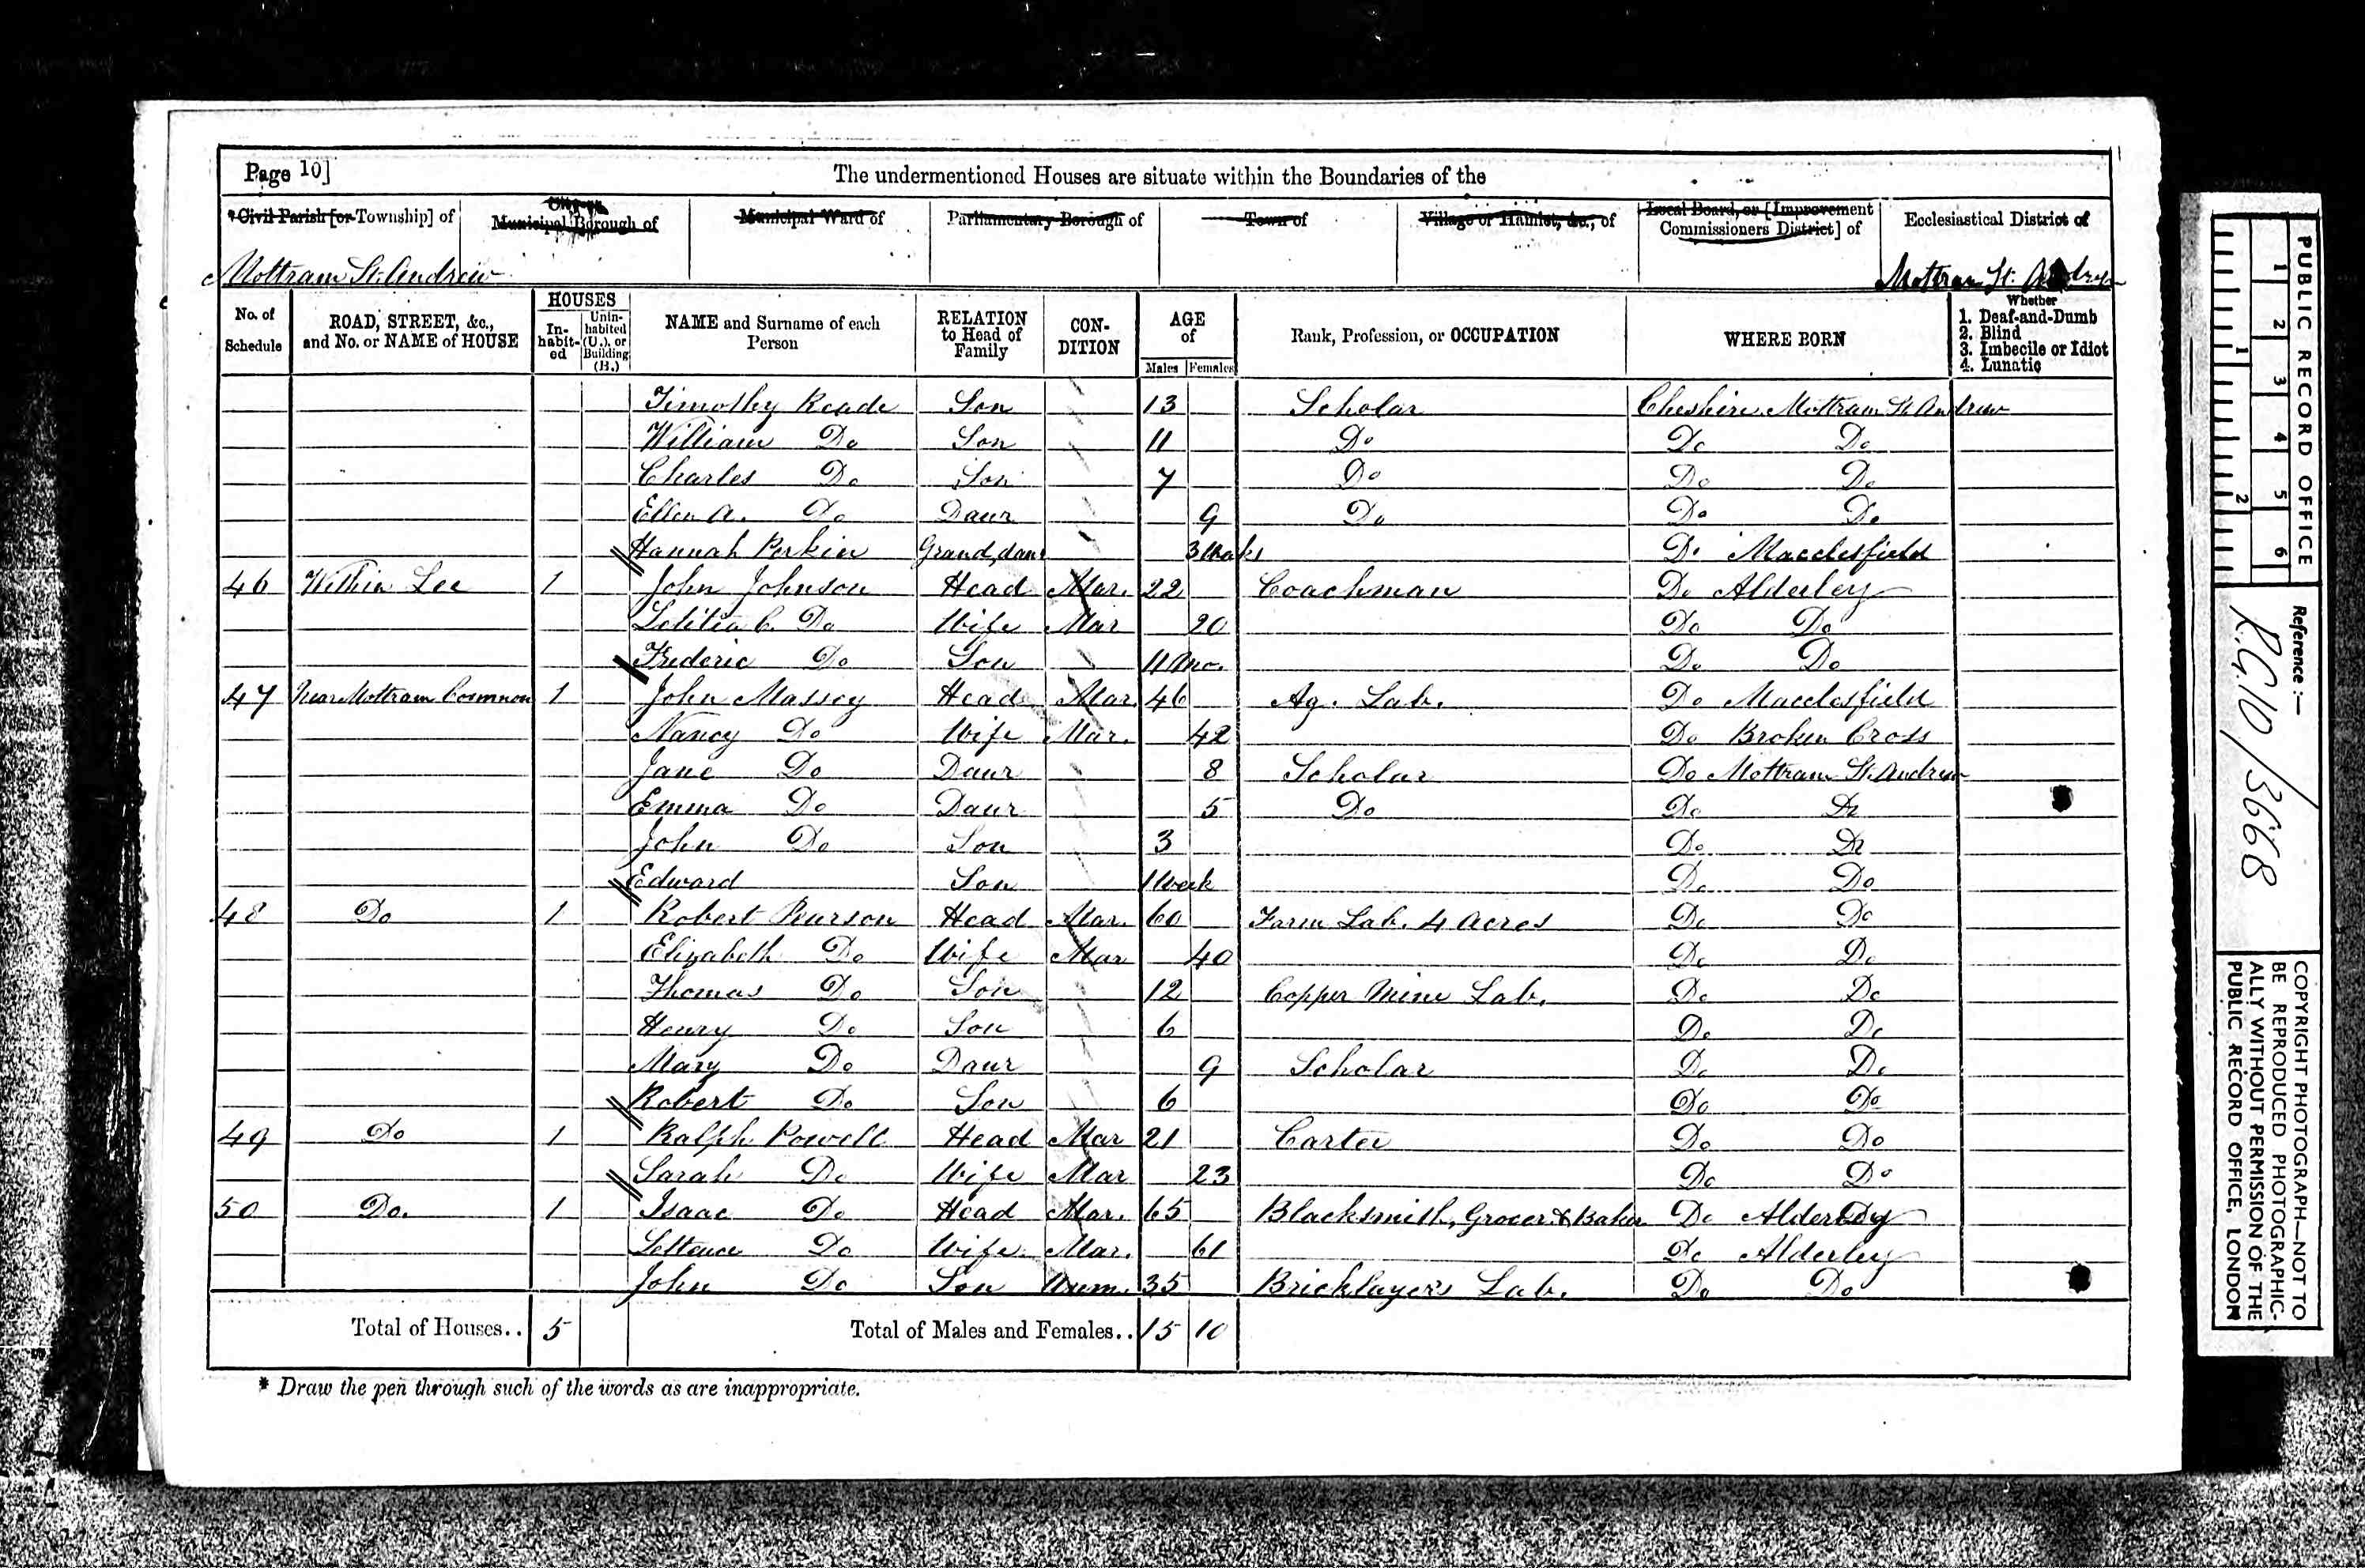 Page 10]
The undermentioned Houses are situate within the Boundaries of the
* Civil Parish [or Township] of
City or Municipal Borough of
Municipal Ward of
Parliamentary Borough of
Town of
Village or Hamlet, &c., of
Local Board, or [Improvement Commissioners District] of
Ecclesiastical District of
Mottram St. Andrew
Mottram St. Andrew
No. of Schedule
ROAD, STREET, &c., and No. or NAME of HOUSE
HOUSES
In-habit-ed
Unin-habited (U.), or Building (B.)
NAME and Surname of each Person
RELATION to Head of Family
CON-DITION
AGE of
Males
Females
Rank, Profession, or OCCUPATION
WHERE BORN
Whether
1. Deaf-and-Dumb
2. Blind
3. Imbecile or Idiot
4. Lunatic
Timothy Reade Son 13 Scholar Cheshire Mottram St. Andrew
William Do Son 11 Do Do Do
Charles Do Son 7 Do Do Do
Ellen A. Do Daur 9 Do Do Do
Hannah Perkin Grand,daur 3 Weeks Do Macclesfield
46 Within Lee 1 John Johnson Head Mar. 22 Coachman Do Alderley
Letitia C. Do Wife Mar 20 Do Do
Frederic Do Son 11 Mo. Do Do
47 Near Mottram Common 1 John Massey Head Mar. 46 Ag. Lab. Do Macclesfield
Nancy Do Wife Mar. 42 Do Broken Cross
Jane Do Daur 8 Scholar Do Mottram St. Andrew
Emma Do Daur 5 Do Do Do
John Do Son 3 Do Do
Edward Son 1 Week Do Do
48 Do 1 Robert Pearson Head Mar. 60 Farm Lab. 4 Acres Do Do
Elizabeth Do Wife Mar 40 Do Do
Thomas Do Son 12 Copper Mine Lab. Do Do
Henry Do Son 6 Do Do
Mary Do Daur 9 Scholar Do Do
Robert Do Son 6 Do Do
49 Do 1 Ralph Powell Head Mar 21 Carter Do Do
Sarah Do Wife Mar 23 Do Do
50 Do. 1 Isaac Do Head Mar. 65 Blacksmith, Grocer & Baker Do Alderley
Lettence Do Wife Mar. 61 Do Alderley
John Do Son Unm. 35 Bricklayers Lab. Do Do
Total of Houses.. 5 Total of Males and Females.. 15 10
* Draw the pen through such of the words as are inappropriate.
PUBLIC RECORD OFFICE
1 2 3 4 5 6
1 2
Reference :—
R.G.10/3668
COPYRIGHT PHOTOGRAPH—NOT TO
BE REPRODUCED PHOTOGRAPHIC-
ALLY WITHOUT PERMISSION OF THE
PUBLIC RECORD OFFICE, LONDON